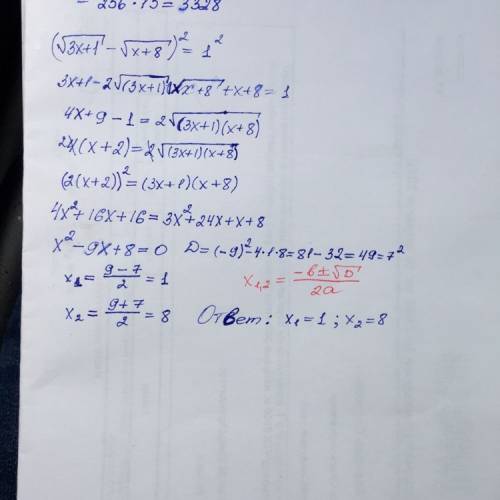 = 256 · 13 = 3328
(√(3x+1) - √(x+8))² = 1²
3x+1-2√(3x+1)·√(x+8) + x+8 = 1
4x+9-1=2√((3x+1)(x+8))
4(x+2)=2√((3x+1)(x+8))
(2(x+2))²=(3x+1)(x+8)
4x²+16x+16=3x²+24x+x+8
x²-9x+8=0 D=(-9)²-4·1·8=81-32=49=7²
x₁=(9-7)/2=1 x₁,₂=(-b±√D)/2a
x₂=(9+7)/2=8 Ответ: x₁=1; x₂=8